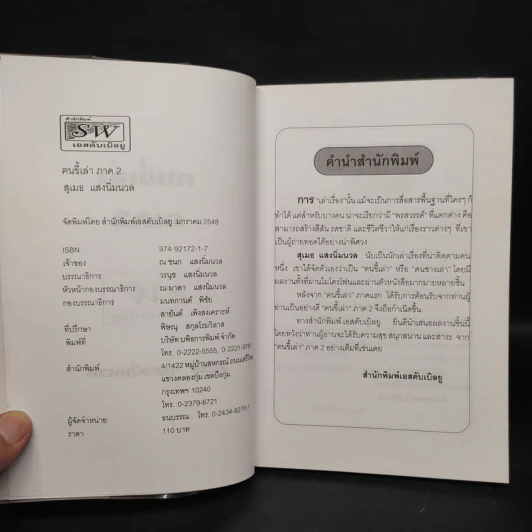 สำนักพิมพ์
SW
เอสดับเบิลยู
คนขี้เล่า ภาค 2
สุเมธ แสงนิ่มนวล
จัดพิมพ์โดย สำนักพิมพ์เอสดับเบิลยู :มกราคม 2548
ISBN 974-92172-1-7
เจ้าของ ณ ชนก แสงนิ่มนวล
บรรณาธิการ วรนุช แสงนิ่มนวล
หัวหน้ากองบรรณาธิการ ณ มาตา แสงนิ่มนวล
กองบรรณาธิการ มนทกานต์ พิชัย
สายันต์ เพิ่งสงเคราะห์
ที่ปรึกษา พิษณุ สกุลโรมวิลาส
พิมพ์ที่ บริษัท บพิธการพิมพ์ จำกัด
โทร. 0-2222-5555, 0-2221-9781
สำนักพิมพ์ 4/1422 หมู่บ้านสหกรณ์ ถนนเสรีไทย
แขวงคลองกุ่ม เขตบึงกุ่ม
กรุงเทพฯ 10240
โทร. 0-2379-6721
ผู้จัดจำหน่าย ธนบรรณ โทร. 0-2434-8270-1
ราคา 110 บาท
คำนำสำนักพิมพ์
การ "เล่าเรื่อง"นั้น แม้จะเป็นการสื่อสารพื้นฐานที่ใครๆ ก็
ทำได้ แต่สำหรับบางคน น่าจะเรียกว่ามี "พรสวรรค์" ที่แตกต่าง คือ
สามารถสร้างสีสัน รสชาติ และชีวิตชีวาให้แก่เรื่องราวต่างๆ ที่เขา
เป็นผู้ถ่ายทอดได้อย่างน่าพิศวง
สุเมธ แสงนิ่มนวล นับเป็นนักเล่าเรื่องที่น่าติดตามคน
หนึ่ง เขาได้จัดตัวเองว่าเป็น "คนขี้เล่า" หรือ "คนช่างเล่า" โดยมี
ผลงานทั้งที่ผ่านไมโครโฟนและผ่านตัวหนังสือมากมายหลายชิ้น
หลังจาก "คนขี้เล่า" ภาคแรก ได้รับการต้อนรับจากท่านผู้
อ่านเป็นอย่างดี "คนขี้เล่า" ภาค 2 จึงถือกำเนิดขึ้น
ทางสำนักพิมพ์ เอสดับเบิลยู ยินดีนำเสนอผลงานชิ้นนี้
โดยหวังว่าท่านผู้อ่านจะได้รับความสุข สนุกสนาน และสาระ จาก
"คนขี้เล่า" ภาค 2 อย่างเต็มที่เช่นเคย
สำนักพิมพ์เอสดับเบิลยู